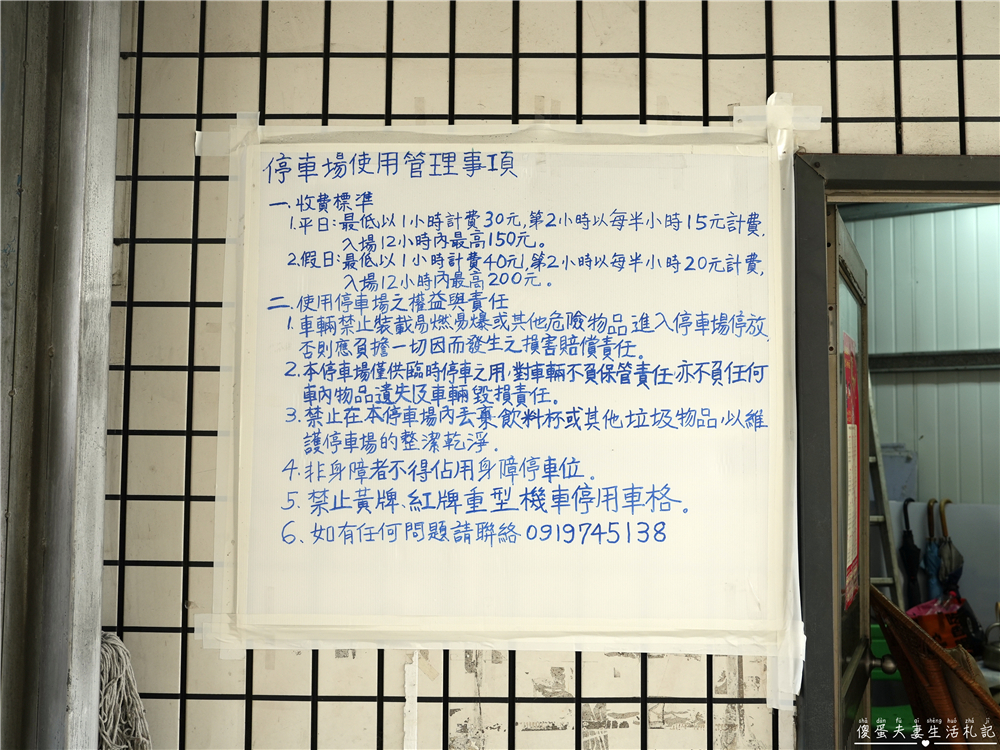 停車場使用管理事項
一. 收費標準
1.平日:最低以1小時計費30元,第2小時以每半小時15元計費,
入場12小時內最高150元。
2.假日:最低以1小時計費40元,第2小時以每半小時20元計費,
入場12小時內最高200元。
二.使用停車場之權益與責任
1.車輛禁止裝載易燃易爆或其他危險物品進入停車場停放,
否則應負擔一切因而發生之損害賠償責任。
2.本停車場僅供臨時停車之用,對車輛不負保管責任,亦不負任何
車內物品遺失及車輛毀損責任。
3.禁止在本停車場內丟棄飲料杯或其他垃圾物品,以維
護停車場的整潔乾淨.
4.非身障者不得佔用身障停車位。
5.禁止黃牌、紅牌重型機車停用車格。
6、如有任何問題請聯絡0919745138
shǎ dàn fū qī shēng huó zhá jì
傻蛋夫妻生活札記